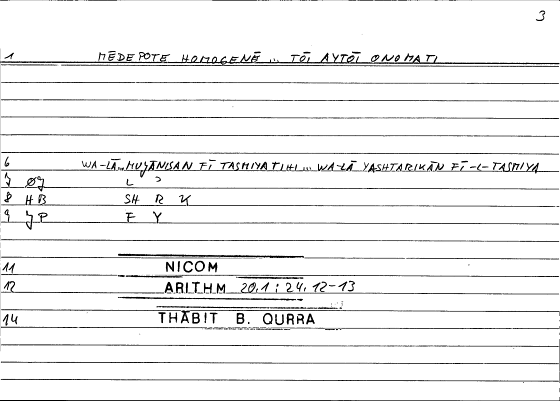 3
1 MĒDEPOTE HOMOGENĒ ... TŌI AYTŌI ONOMATI
6 WA-LĀ...MUǦĀNISAN FĪ TASMIYATIHI... WA-LĀ YASHTARIKĀN FĪ-L-TASMIYA
L ɔ
8 HB SH R K
9 F Y
11 NICOM
12 ARITHM 20,1 : 24, 12-13
14 THĀBIT B. QURRA